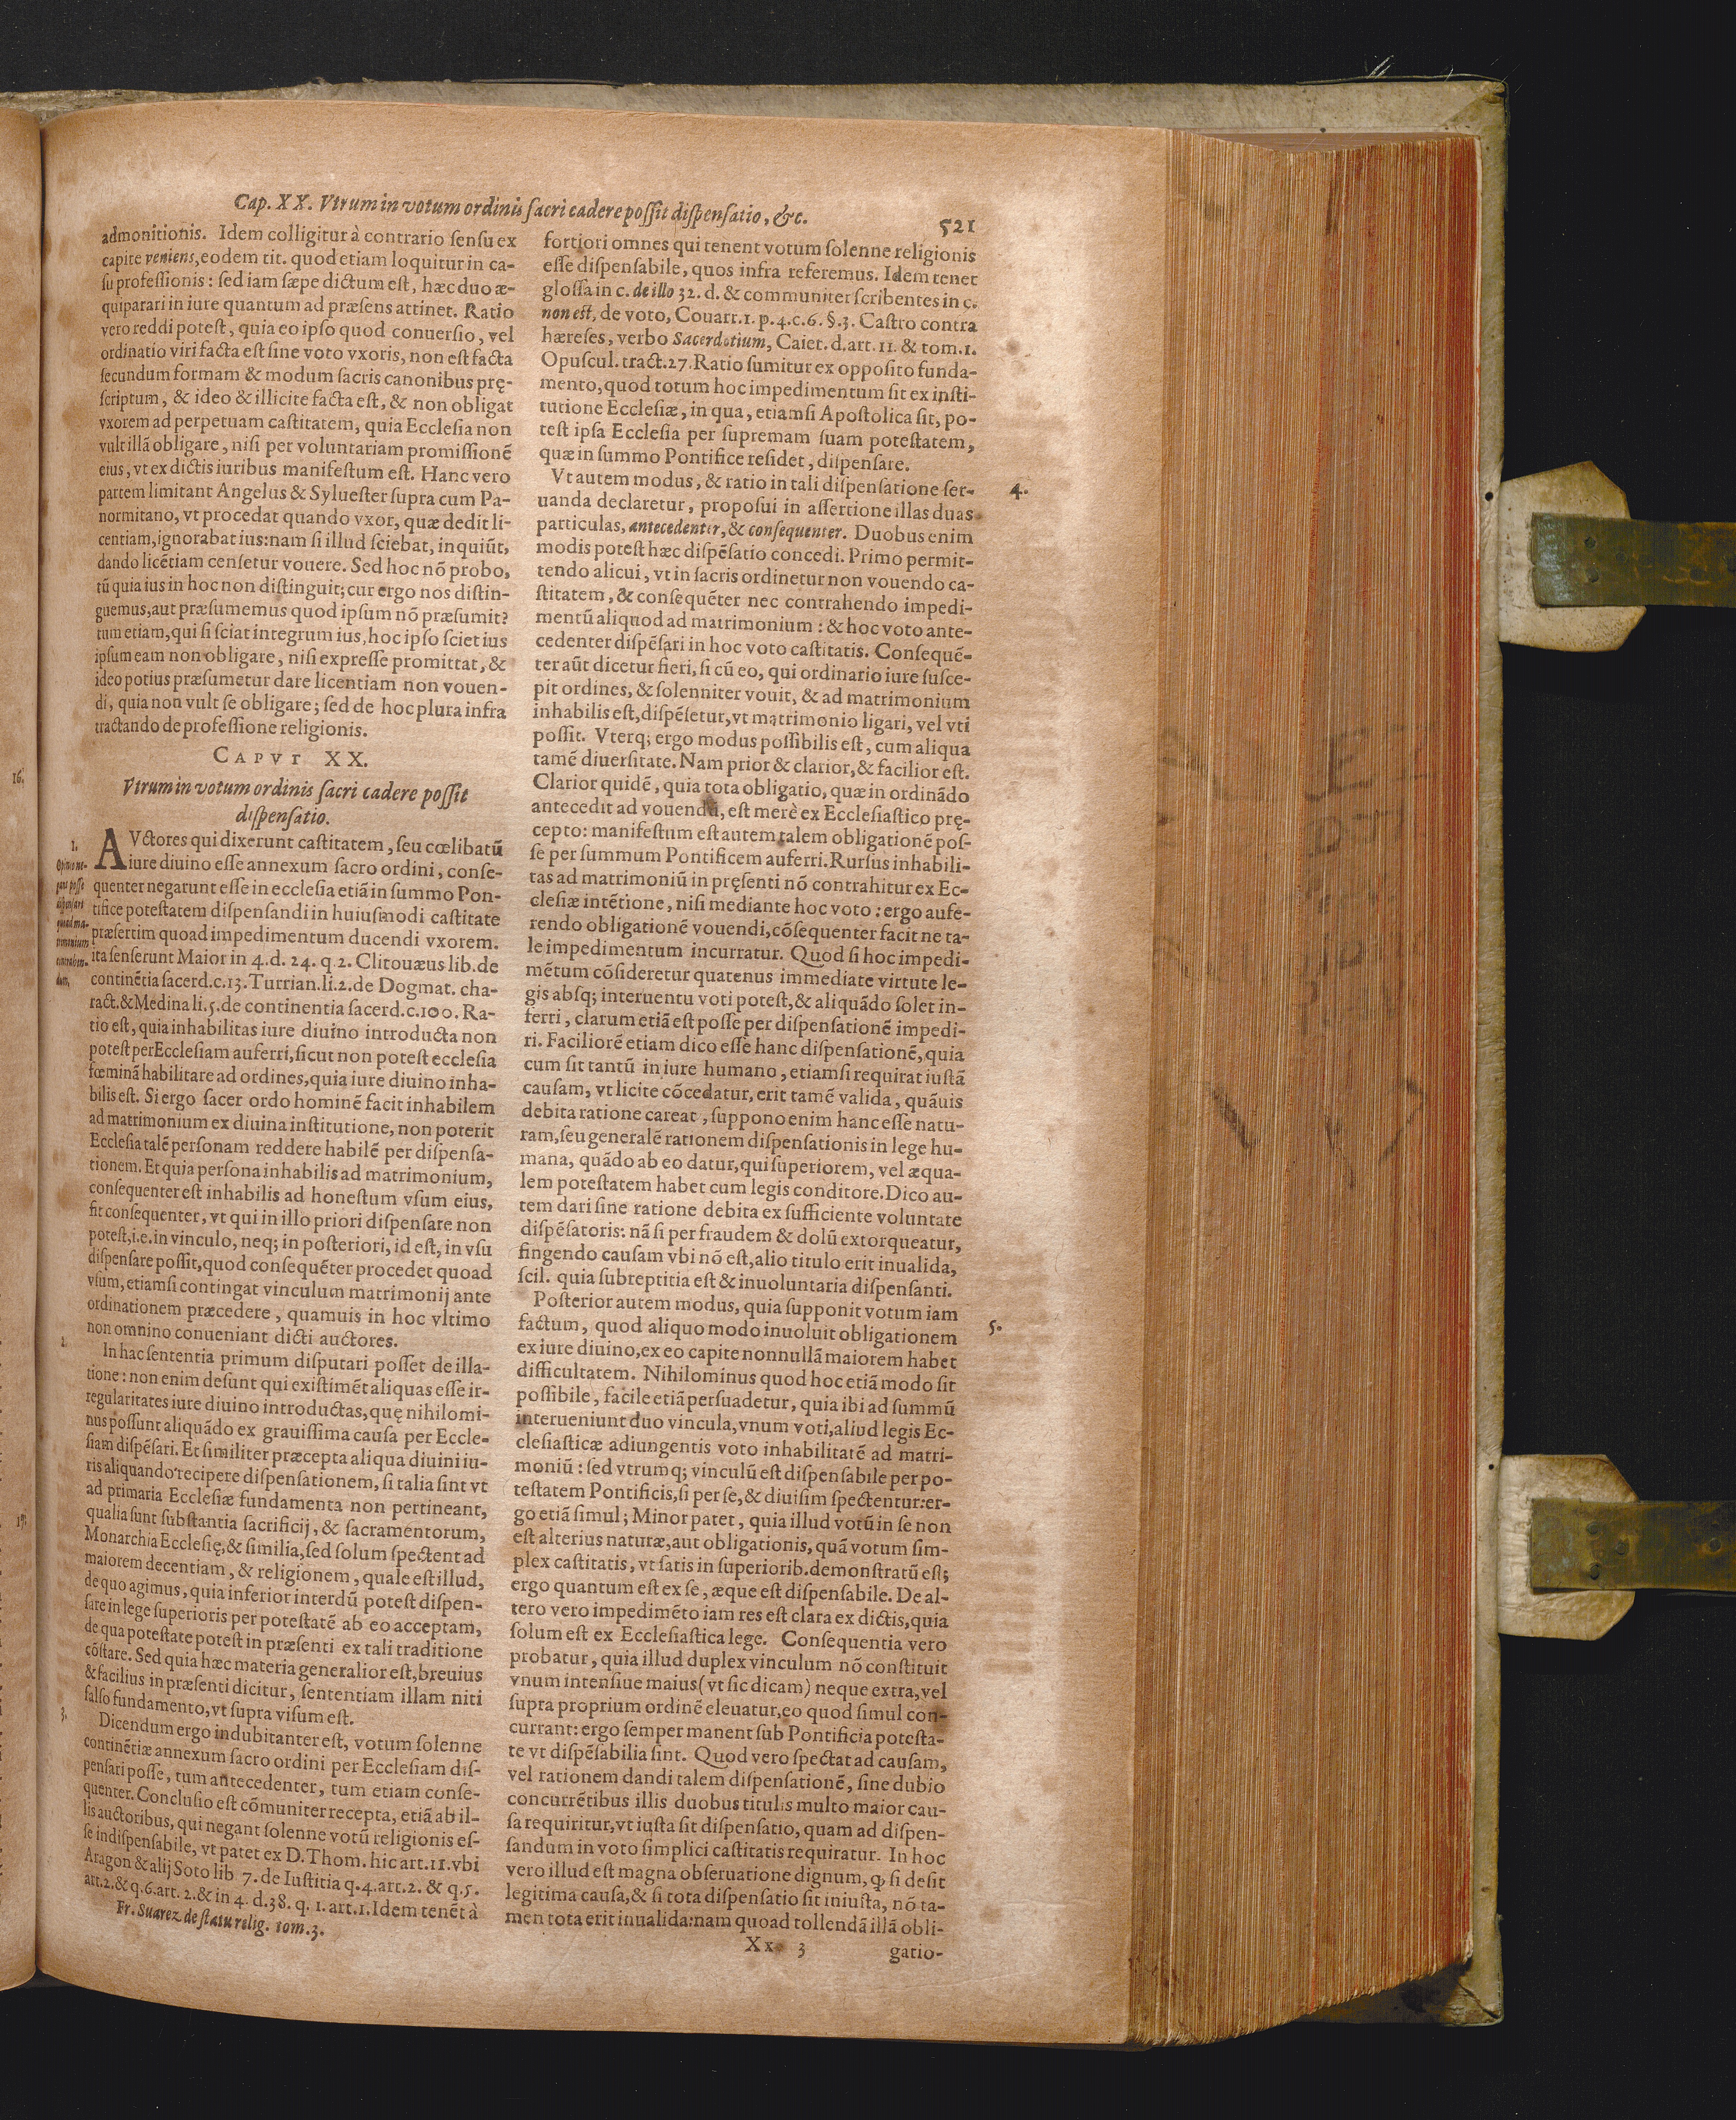 Cap. XX. Vtrum in votum ordinis sacri cadere possit dispensatio, &c.
521
admonitionis. Idem colligitur à contrario sensu ex
capite veniens, eodem tit. quod etiam loquitur in ca-
su professionis: sed iam sæpe dictum est, hæc duo æ-
quiparari in iure quantum ad præsens attinet. Ratio
vero reddi potest, quia eo ipso quod conuersio, vel
ordinatio viri facta est sine voto vxoris, non est facta
secundum formam & modum sacris canonibus prę-
scriptum, & ideo & illicite facta est, & non obligat
vxorem ad perpetuam castitatem, quia Ecclesia non
vult illã obligare, nisi per voluntariam promissionẽ
eius, vt ex dictis iuribus manifestum est. Hanc vero
partem limitant Angelus & Syluester supra cum Pa-
normitano, vt procedat quando vxor, quæ dedit li-
centiam, ignorabat ius: nam si illud sciebat, inquiũt,
dando licẽtiam censetur vouere. Sed hoc nõ probo,
tũ quia ius in hoc non distinguit; cur ergo nos distin-
guemus, aut præsumemus quod ipsum nõ præsumit?
tum etiam, qui si sciat integrum ius, hoc ipso sciet ius
ipsum eam non obligare, nisi expresse promittat, &
ideo potius præsumetur dare licentiam non vouen-
di, quia non vult se obligare; sed de hoc plura infra
tractando de professione religionis.
CAPVT XX.
Vtrum in votum ordinis sacri cadere possit
dispensatio.
1.
Opinio ne-
gans posse
dispensari
quoad ma-
trimonium
contrahen-
dum.
AVctores qui dixerunt castitatem, seu cœlibatũ
iure diuino esse annexum sacro ordini, conse-
quenter negarunt esse in ecclesia etiã in summo Pon-
tifice potestatem dispensandi in huiusmodi castitate
præsertim quoad impedimentum ducendi vxorem.
ita senserunt Maior in 4. d. 24. q 2. Clitouæus lib. de
continẽtia sacerd. c. 13. Turrian. li. 2. de Dogmat. cha-
ract. & Medina li. 5. de continentia sacerd. c. 100. Ra-
tio est, quia inhabilitas iure diuino introducta non
potest per Ecclesiam auferri, sicut non potest ecclesia
fœminã habilitare ad ordines, quia iure diuino inha-
bilis est. Si ergo sacer ordo hominẽ facit inhabilem
ad matrimonium ex diuina institutione, non poterit
Ecclesia talẽ personam reddere habilẽ per dispensa-
tionem. Et quia persona inhabilis ad matrimonium,
consequenter est inhabilis ad honestum vsum eius,
fit consequenter, vt qui in illo priori dispensare non
potest, i.e. in vinculo, neq; in posteriori, id est, in vsu
dispensare possit, quod consequẽter procedet quoad
vsum, etiamsi contingat vinculum matrimonij ante
ordinationem præcedere, quamuis in hoc vltimo
non omnino conueniant dicti auctores.
2.
In hac sententia primum disputari posset de illa-
tione: non enim desunt qui existimẽt aliquas esse ir-
regularitates iure diuino introductas, quę nihilomi-
nus possunt aliquãdo ex grauissima causa per Eccle-
siam dispẽsari. Et similiter præcepta aliqua diuini iu-
ris aliquando recipere dispensationem, si talia sint vt
ad primaria Ecclesiæ fundamenta non pertineant,
qualia sunt substantia sacrificij, & sacramentorum,
Monarchia Ecclesię, & similia, sed solum spectent ad
maiorem decentiam, & religionem, quale est illud,
de quo agimus, quia inferior interdũ potest dispen-
sare in lege superioris per potestatẽ ab eo acceptam,
de qua potestate potest in præsenti ex tali traditione
cõstare. Sed quia hæc materia generalior est, breuius
& facilius in præsenti dicitur, sententiam illam niti
falso fundamento, vt supra visum est.
3.
Dicendum ergo indubitanter est, votum solenne
continẽtiæ annexum sacro ordini per Ecclesiam dis-
pensari posse, tum antecedenter, tum etiam conse-
quenter. Conclusio est cõmuniter recepta, etiã ab il-
lis auctoribus, qui negant solenne votũ religionis es-
se indispensabile, vt patet ex D. Thom. hic art. 11. vbi
Aragon & alij Soto lib 7. de Iustitia q. 4. art. 2. & q. 5.
art. 2. & q. 6. art. 2. & in 4. d. 38. q. 1. art. 1. Idem tenẽt à
Fr. Suarez de statu relig. tom. 3.
fortiori omnes qui tenent votum solenne religionis
esse dispensabile, quos infra referemus. Idem tenet
glossa in c. de illo 32. d. & communiter scribentes in c.
non est, de voto, Couarr. 1. p. 4. c. 6. §. 3. Castro contra
hæreses, verbo Sacerdotium, Caiet. d. art. 11. & tom. 1.
Opuscul. tract. 27. Ratio sumitur ex opposito funda-
mento, quod totum hoc impedimentum sit ex insti-
tutione Ecclesiæ, in qua, etiamsi Apostolica sit, po-
test ipsa Ecclesia per supremam suam potestatem,
quæ in summo Pontifice residet, dispensare.
4.
Vt autem modus, & ratio in tali dispensatione ser-
uanda declaretur, proposui in assertione illas duas
particulas, antecedenter, & consequenter. Duobus enim
modis potest hæc dispẽsatio concedi. Primo permit-
tendo alicui, vt in sacris ordinetur non vouendo ca-
stitatem, & consequẽter nec contrahendo impedi-
mentũ aliquod ad matrimonium: & hoc voto ante-
cedenter dispẽsari in hoc voto castitatis. Consequẽ-
ter aũt dicetur fieri, si cũ eo, qui ordinario iure susce-
pit ordines, & solenniter vouit, & ad matrimonium
inhabilis est, dispẽsetur, vt matrimonio ligari, vel vti
possit. Vterq; ergo modus possibilis est, cum aliqua
tamẽ diuersitate. Nam prior & clarior, & facilior est.
Clarior quidẽ, quia tota obligatio, quæ in ordinãdo
antecedit ad vouendũ, est merè ex Ecclesiastico prę-
cepto: manifestum est autem talem obligationẽ pos-
se per summum Pontificem auferri. Rursus inhabili-
tas ad matrimoniũ in pręsenti nõ contrahitur ex Ec-
clesiæ intẽtione, nisi mediante hoc voto: ergo aufe-
rendo obligationẽ vouendi, cõsequenter facit ne ta-
le impedimentum incurratur. Quod si hoc impedi-
mẽtum cõsideretur quatenus immediate virtute le-
gis absq; interuentu voti potest, & aliquãdo solet in-
ferri, clarum etiã est posse per dispensationẽ impedi-
ri. Faciliorẽ etiam dico esse hanc dispensationẽ, quia
cum sit tantũ in iure humano, etiamsi requirat iustã
causam, vt licite cõcedatur, erit tamẽ valida, quãuis
debita ratione careat, suppono enim hanc esse natu-
ram, seu generalẽ rationem dispensationis in lege hu-
mana, quãdo ab eo datur, qui superiorem, vel æqua-
lem potestatem habet cum legis conditore. Dico au-
tem dari sine ratione debita ex sufficiente voluntate
dispẽsatoris: nã si per fraudem & dolũ extorqueatur,
fingendo causam vbi nõ est, alio titulo erit inualida,
scil. quia subreptitia est & inuoluntaria dispensanti.
5.
Posterior autem modus, quia supponit votum iam
factum, quod aliquo modo inuoluit obligationem
ex iure diuino, ex eo capite nonnullã maiorem habet
difficultatem. Nihilominus quod hoc etiã modo sit
possibile, facile etiã persuadetur, quia ibi ad summũ
interueniunt duo vincula, vnum voti, aliud legis Ec-
clesiasticæ adiungentis voto inhabilitatẽ ad matri-
moniũ: sed vtrumq; vinculũ est dispensabile per po-
testatem Pontificis, si per se, & diuisim spectentur: er-
go etiã simul; Minor patet, quia illud votũ in se non
est alterius naturæ, aut obligationis, quã votum sim-
plex castitatis, vt satis in superiorib. demonstratũ est;
ergo quantum est ex se, æque est dispensabile. De al-
tero vero impedimẽto iam res est clara ex dictis, quia
solum est ex Ecclesiastica lege. Consequentia vero
probatur, quia illud duplex vinculum nõ constituit
vnum intensiue maius (vt sic dicam) neque extra, vel
supra proprium ordinẽ eleuatur, eo quod simul con-
currant: ergo semper manent sub Pontificia potesta-
te vt dispẽsabilia sint. Quod vero spectat ad causam,
vel rationem dandi talem dispensationẽ, sine dubio
concurrẽtibus illis duobus titulis multo maior cau-
sa requiritur, vt iusta sit dispensatio, quam ad dispen-
sandum in voto simplici castitatis requiratur. In hoc
vero illud est magna obseruatione dignum, ꝙ si desit
legitima causa, & si tota dispensatio sit iniusta, nõ ta-
men tota erit inualida: nam quoad tollendã illã obli-
Xx 3
gatio-